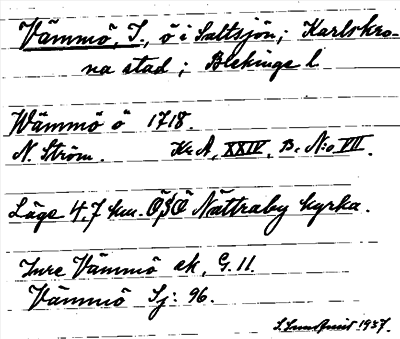 Vämmö, I., ö i Saltsjön; Karlskro-
na stad; Blekinge l
Wämmö ö 1718.
N. Ström. Kr. A, XXIV, B. N:o VII.
Läge 4,7 km. ÖSÖ Nättraby kyrka.
Inre Vämmö ek, G. 11.
Vämmö Sj: 96.
S. Lundqvist 1937.